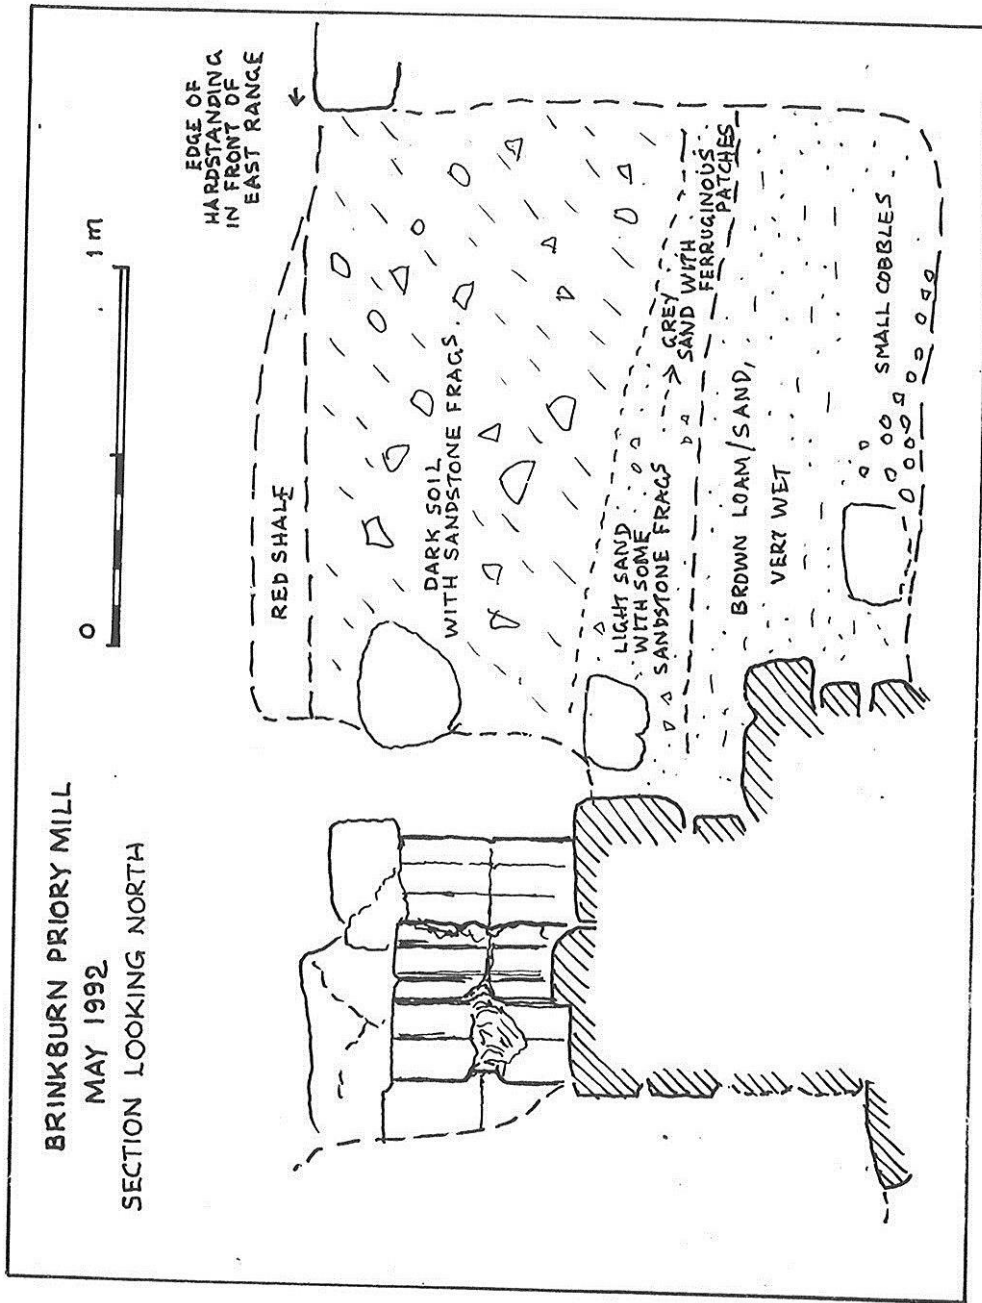 BRINKBURN PRIORY MILL
MAY 1992
SECTION LOOKING NORTH
0
1 m
EDGE OF
HARDSTANDING
IN FRONT OF
EAST RANGE
RED SHALE
DARK SOIL
WITH SANDSTONE FRAGS.
LIGHT SAND
WITH SOME
SANDSTONE FRAGS
GREY
SAND WITH
FERRUGINOUS
PATCHES
BROWN LOAM/SAND,
VERY WET
SMALL COBBLES